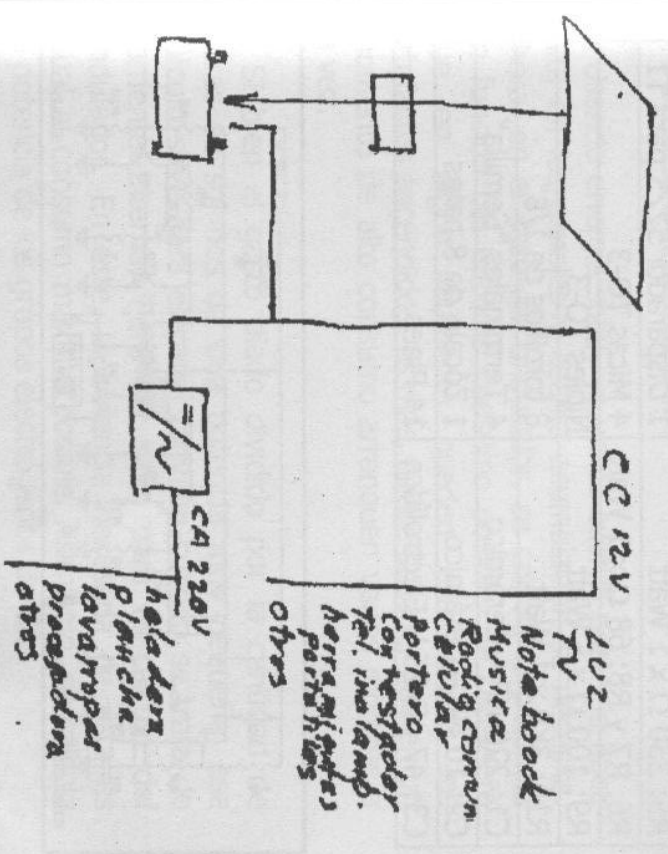 CC 12V
LUZ
TV
Note boock
Musica
Radio comun.
celular
Portero
Contestador
Tel. inalamb.
herramientas
portatiles
otros
= / ~
CA 220V
heladera
plancha
lavaropas
procesadora
otros